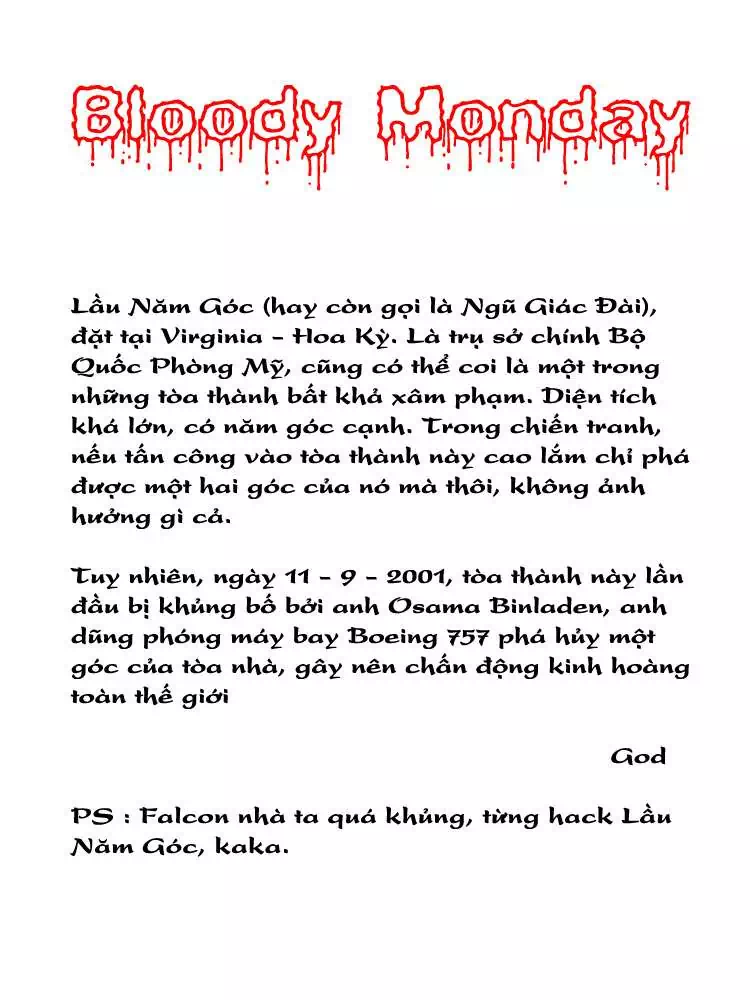 Bloody Monday
Lầu Năm Góc (hay còn gọi là Ngũ Giác Đài),
đặt tại Virginia - Hoa Kỳ. Là trụ sở chính Bộ
Quốc Phòng Mỹ, cũng có thể coi là một trong
những tòa thành bất khả xâm phạm. Diện tích
khá lớn, có năm góc cạnh. Trong chiến tranh,
nếu tấn công vào tòa thành này cao lắm chỉ phá
được một hai góc của nó mà thôi, không ảnh
hưởng gì cả.
Tuy nhiên, ngày 11 - 9 - 2001, tòa thành này lần
đầu bị khủng bố bởi anh Osama Binladen, anh
dũng phóng máy bay Boeing 757 phá hủy một
góc của tòa nhà, gây nên chấn động kinh hoàng
toàn thế giới
God
PS : Falcon nhà ta quá khủng, từng hack Lầu
Năm Góc, kaka.